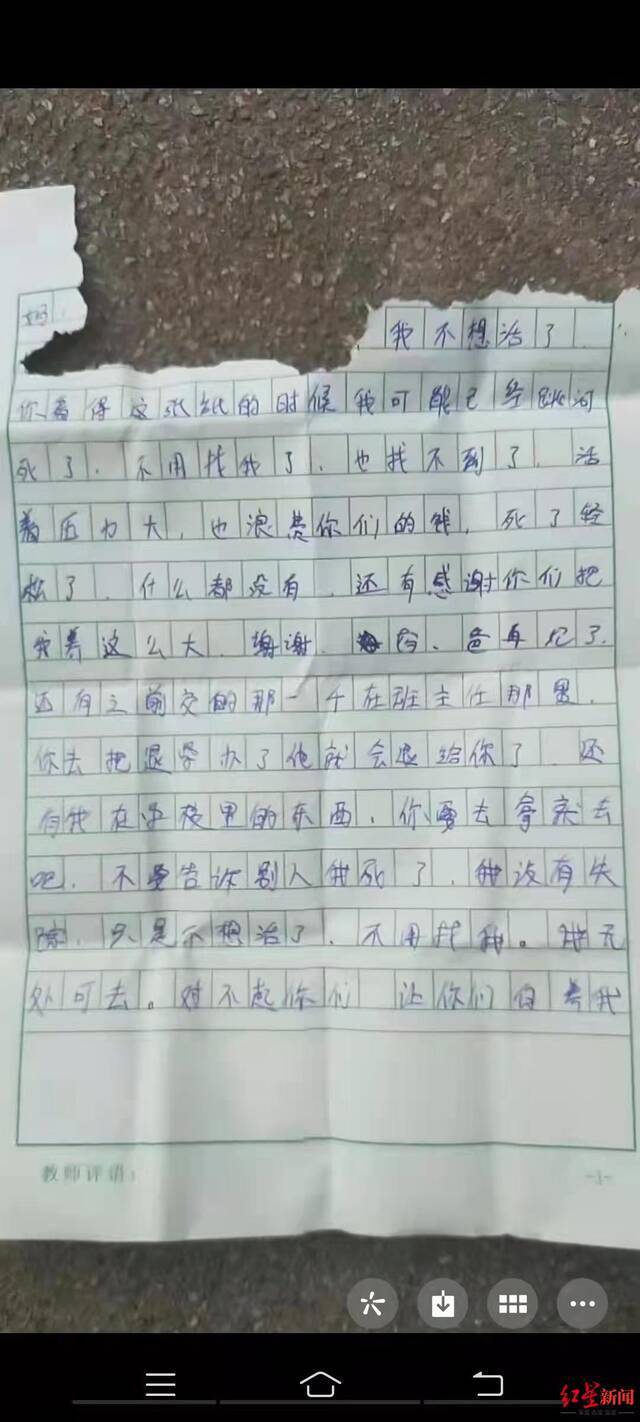 妈:
我不想活了.
你看得这张纸的时候我可能已经跳河
死了.不用找我了.也找不到了.活
着压力大,也浪费你们的钱,死了轻
松了.什么都没有.还有感谢你们把
我养这么大.谢谢.妈、爸再见了.
还有之前交的那一千在班主任那里.
你去把退学办了他就会退给你了.还
有我在学校里的东西.你要去拿来去
吧.不要告诉别人我死了.我没有失
踪.只是不想活了.不用找我。我无
处可去。对不起你们 让你们白养我
教师评语:
-1-
红星新闻